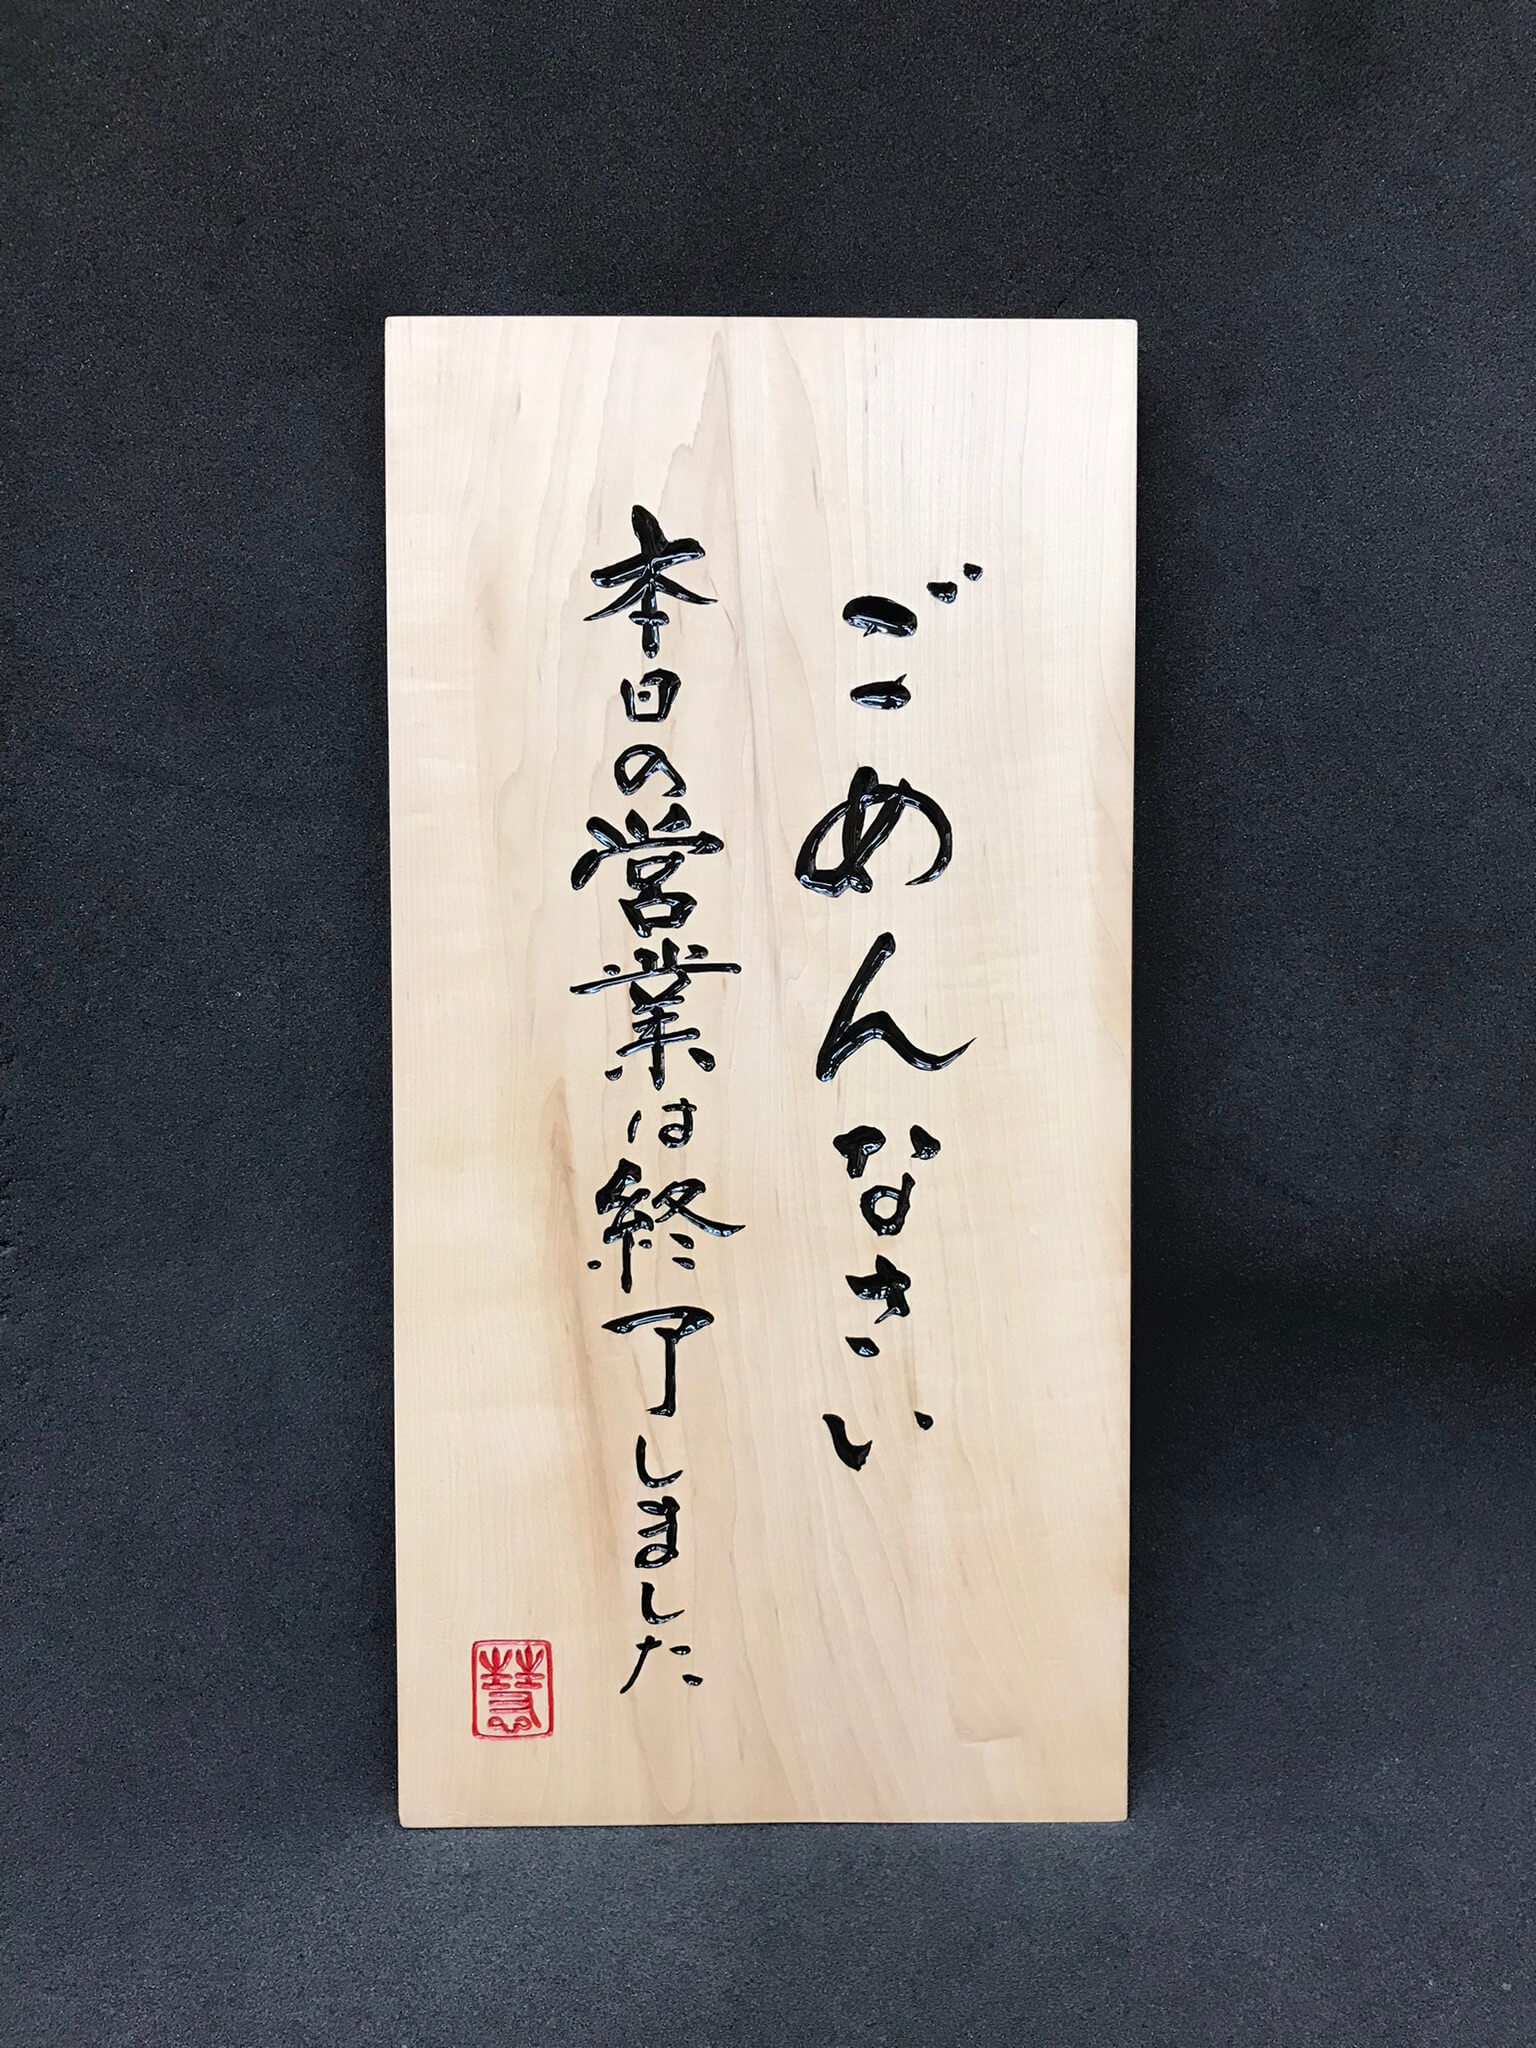 ごめんなさい
本日の営業は終了しました
慧